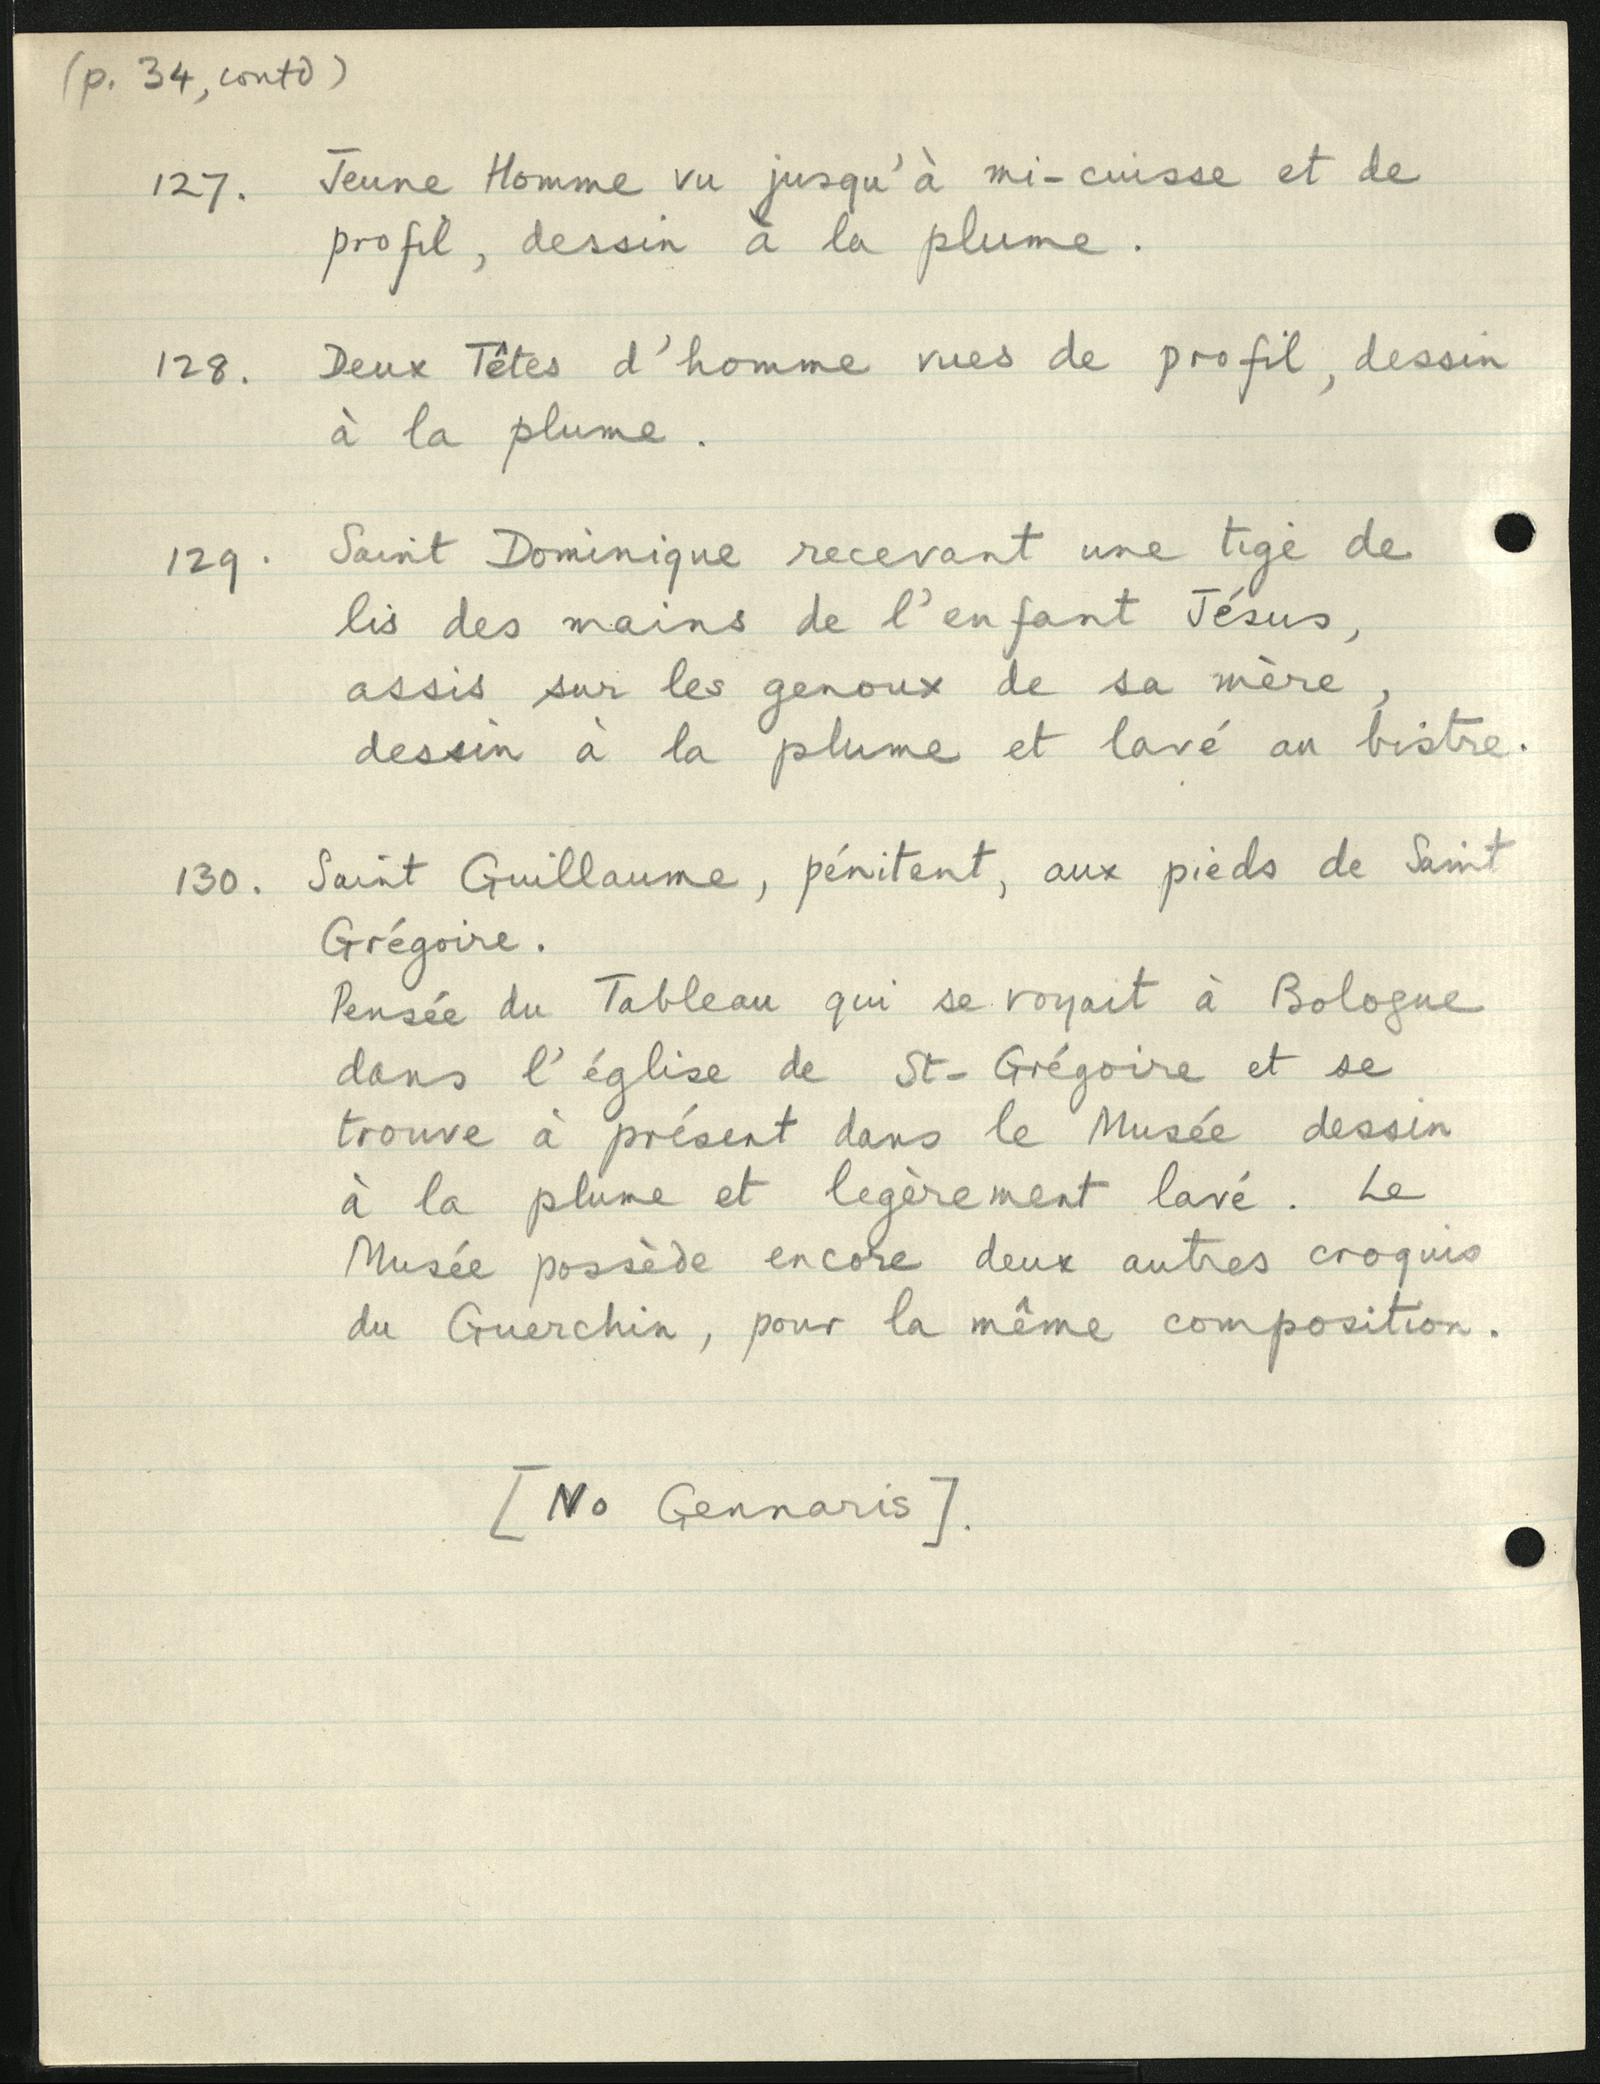 (p. 34, contd)
127. Jeune Homme vu jusqu'à mi-cuisse et de
profil, dessin à la plume.
128. Deux Têtes d'homme vues de profil, dessin
à la plume.
129. Saint Dominique recevant une tige de
lis des mains de l'enfant Jésus,
assis sur les genoux de sa mère,
dessin à la plume et lavé au bistre.
130. Saint Guillaume, pénitent, aux pieds de Saint
Grégoire.
Pensée du Tableau qui se voyait à Bologne
dans l'église de St-Grégoire et se
trouve à présent dans le Musée dessin
à la plume et legèrement lavé. Le
Musée possède encore deux autres croquis
du Guerchin, pour la même composition.
[No Gennaris].